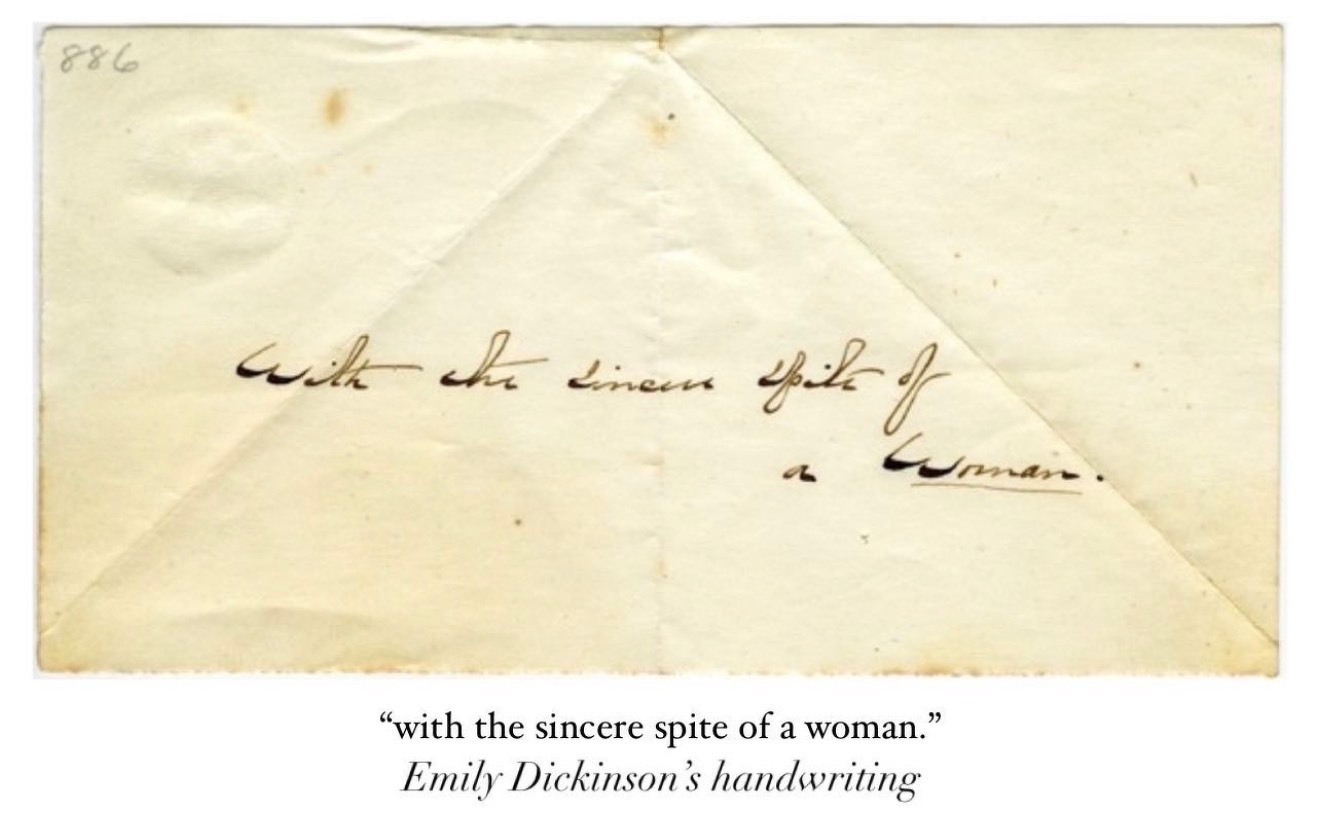 886
With the sincere spite of
a Woman.
“with the sincere spite of a woman.”
Emily Dickinson’s handwriting